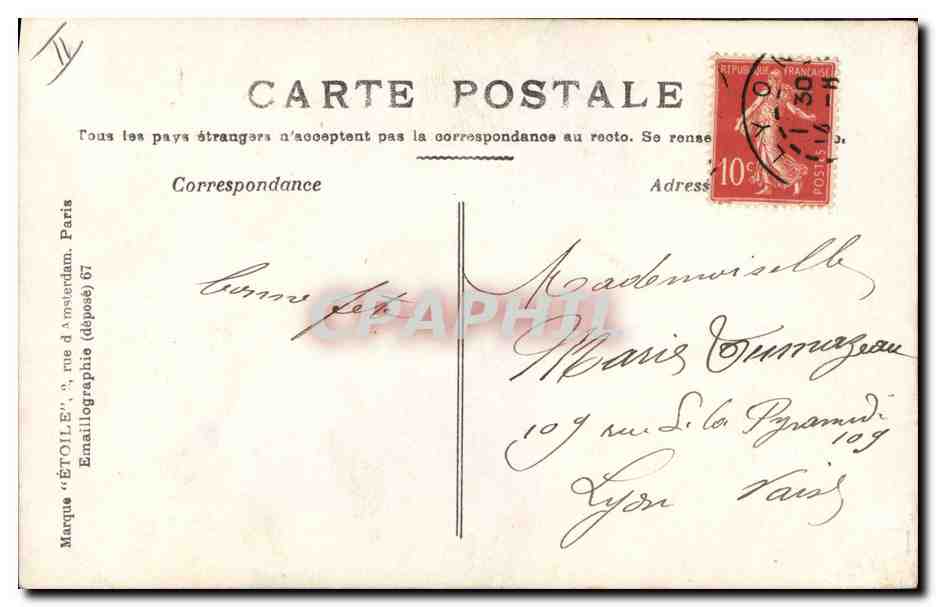 II
CARTE POSTALE
Tous les pays étrangers n'acceptent pas la correspondance au recto. Se rense
Correspondance
Adress
RÉPUBLIQUE FRANÇAISE
10 c
POSTES
LYO
11 30
14
bonne fête
Mademoiselle
Marie
109 rue de la Pyramide
109
Lyon Vaise
Marque "ÉTOILE", rue d'Amsterdam. Paris
Emaillographie (déposé) 67
CPAPHIL